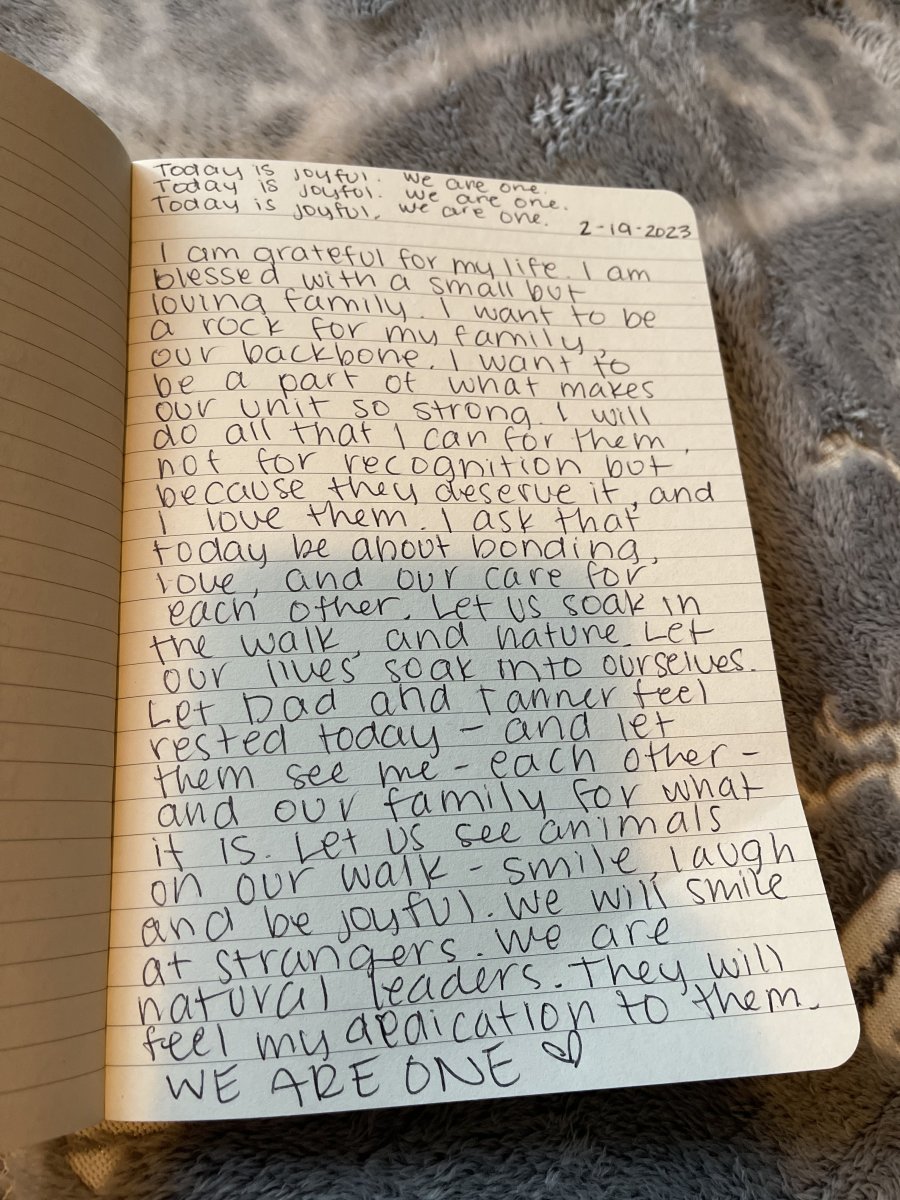 Today is joyful. We are one.
Today is joyful. We are one.
Today is joyful. We are one.
2-19-2023
I am grateful for my life. I am
blessed with a small but
loving family. I want to be
a rock for my family,
our backbone. I want to
be a part of what makes
our unit so strong. I will
do all that I can for them,
not for recognition but
because they deserve it, and
I love them. I ask that
today be about bonding,
love, and our care for
each other. Let us soak in
the walk, and nature. Let
our lives soak into ourselves.
Let Dad and Tanner feel
rested today - and let
them see me - each other -
and our family for what
it is. Let us see animals
on our walk - smile, laugh
and be joyful. We will smile
at strangers. We are
natural leaders. They will
feel my dedication to them.
WE ARE ONE ♡